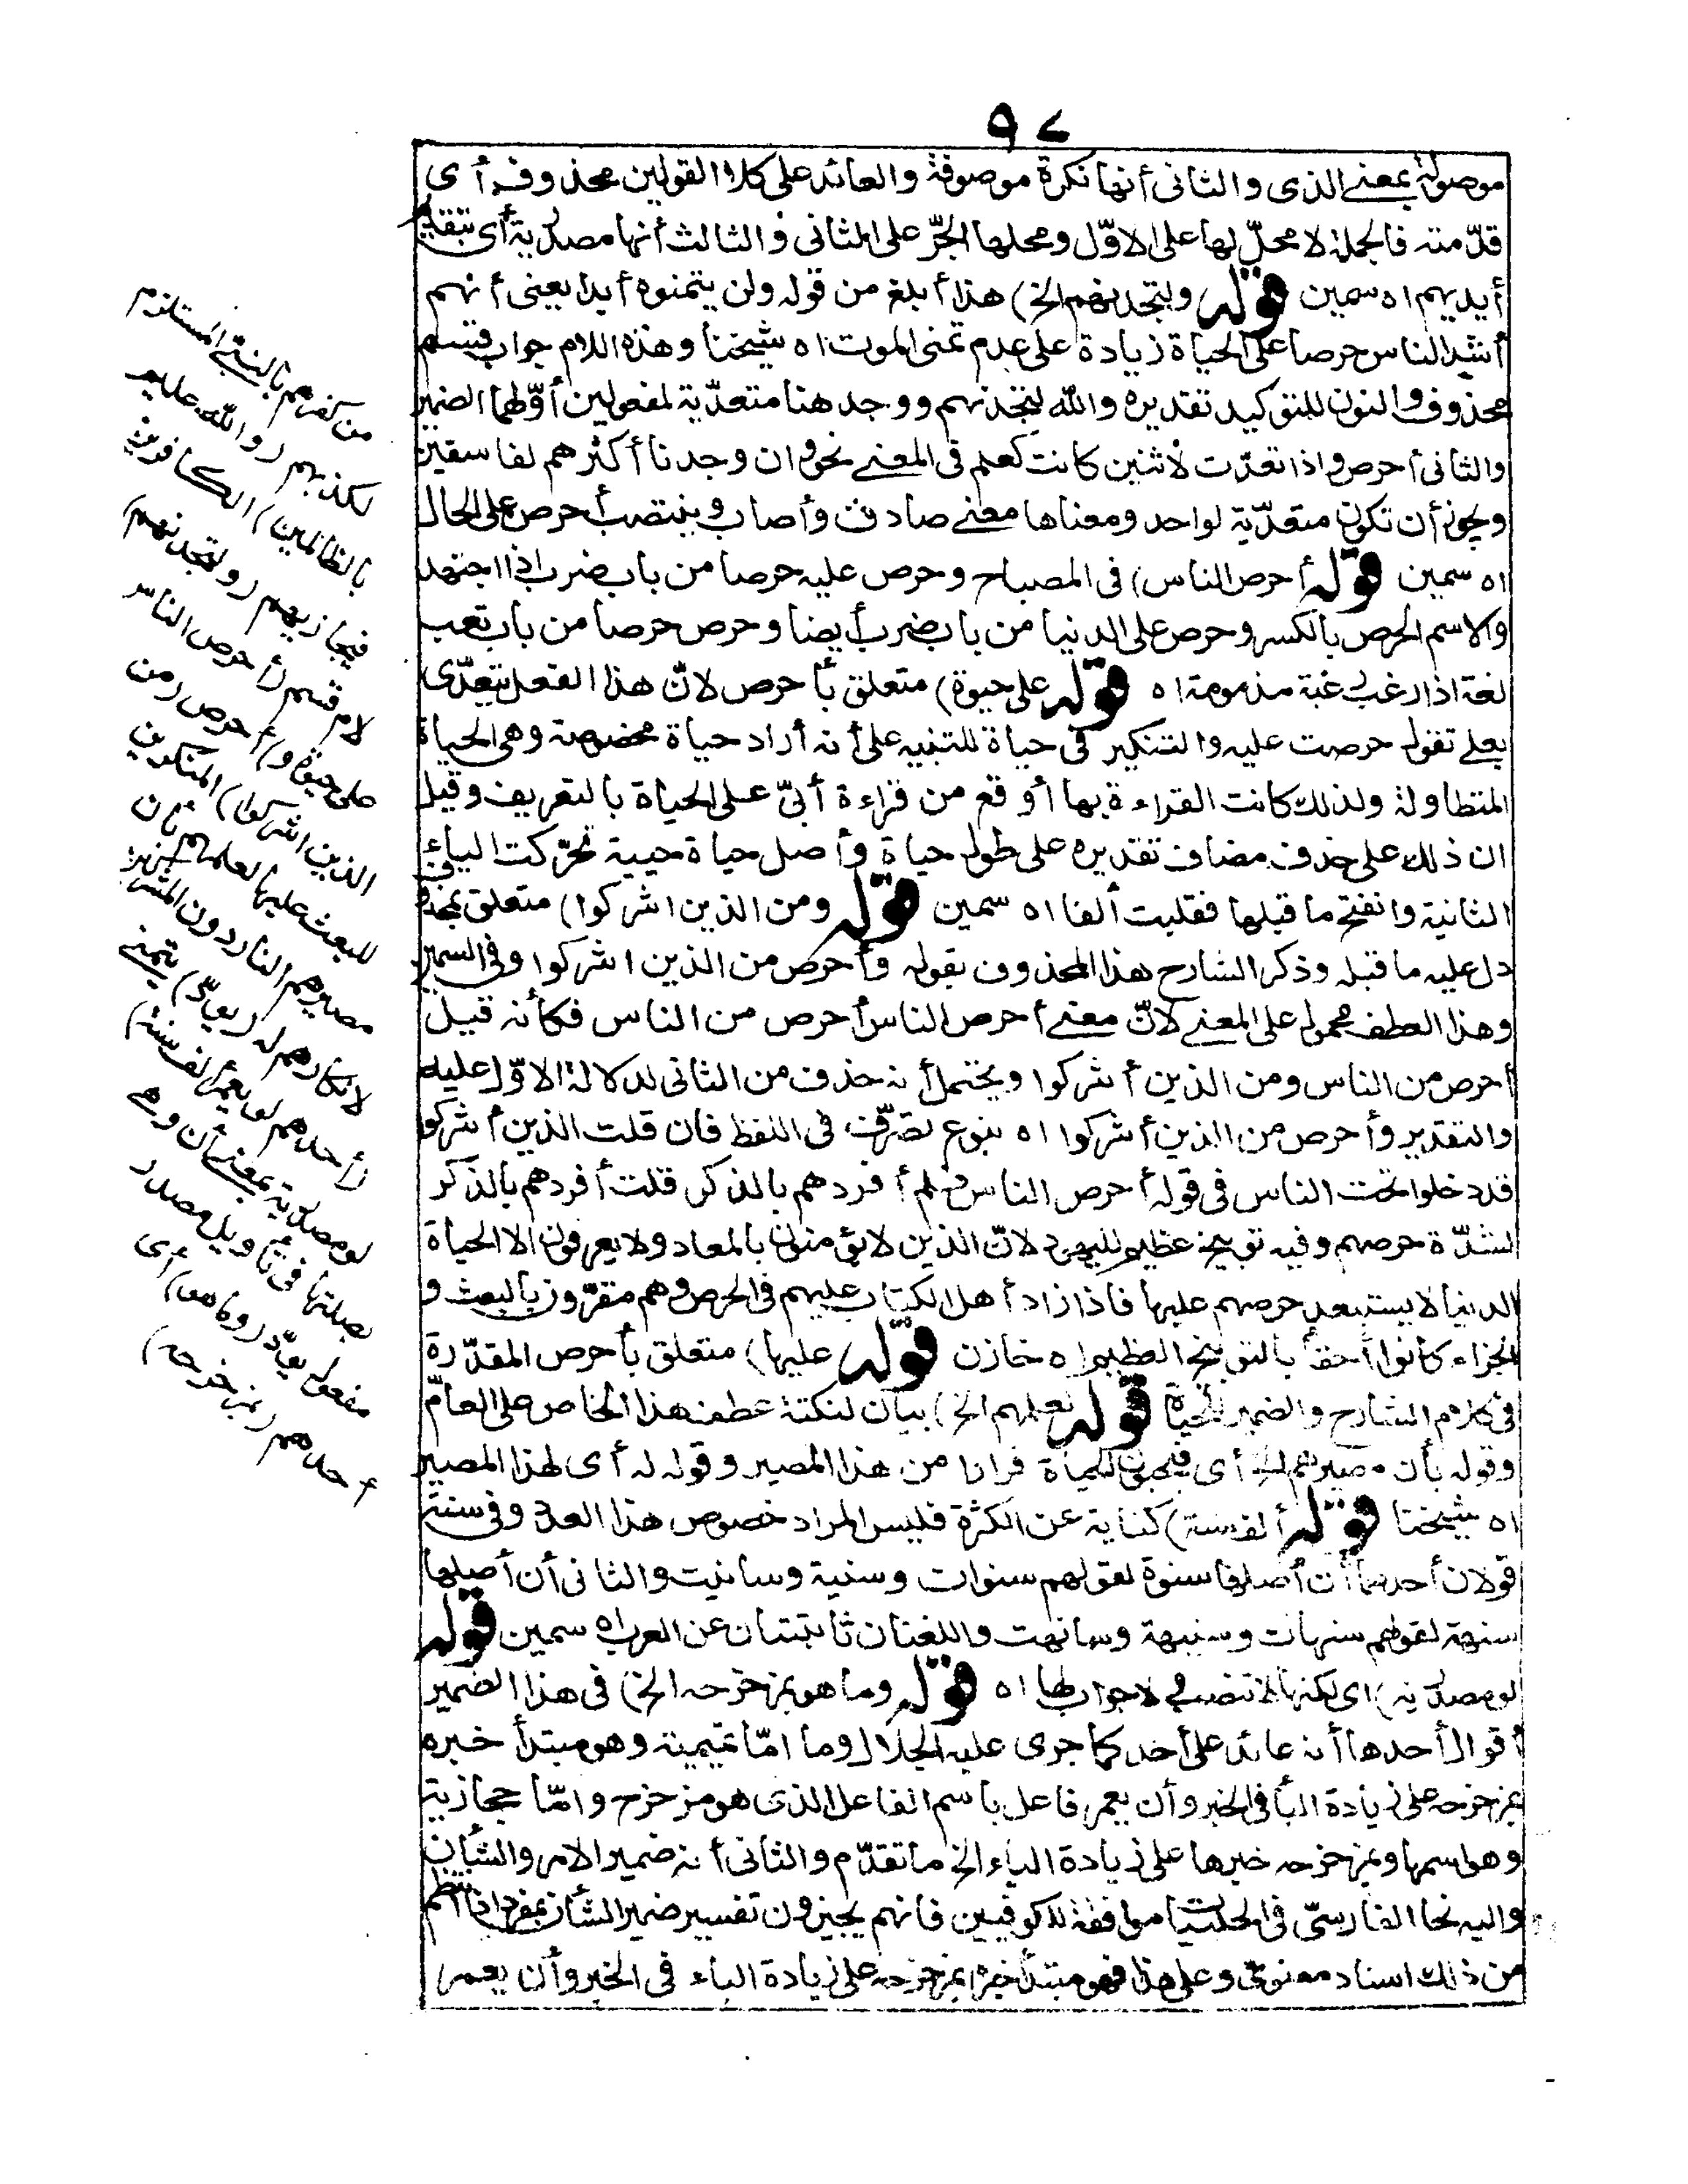 ٩٧
موصولة بمعنے الذى والثانى أنها نكرة موصوفة والعائد على كلا القولين محذوف أى
قدّمته فالجملة لا محلّ لها على الاوّل ومحلها الجرّ على الثانى والثالث أنها مصدرية أى بتقديم
أيديهم اه سمين قوله ولتجدنهم الخ) هذا أبلغ من قوله ولن يتمنوه أبدا يعنى أنهم
أشد الناس حرصا على الحياة زيادة على عدم تمنى الموت اه شيخنا وهذه اللام جواب قسم
محذوف والنون للتوكيد تقديره والله لتجدنهم ووجد هنا متعدّية لمفعولين أوّلهما الضمير
والثانى أحرص واذا تعدّت لاثنين كانت كعلم فى المعنے نحو وان وجدنا أكثرهم لفاسقين
ويجوز أن تكون متعدّية لواحد ومعناها معنے صادف وأصاب وينتصب أحرص على الحال
اه سمين قوله أحرص الناس) فى المصباح وحرص عليه حرصا من باب ضرب اذا اجتهد
والاسم الحرص بالكسر وحرص على الدنيا من باب ضرب أيضا وحرص حرصا من باب تعب
لغة اذا رغب رغبة مذمومة اه قوله على حيوة) متعلق بأحرص لانّ هذا الفعل يتعدّى
بعلے تقول حرصت عليه والتنكير فى حياة للتنبيه على أنه أراد حياة مخصوصة وهى الحياة
المتطاولة ولذلك كانت القراءة بها أوقع من قراءة أبىّ على الحياة بالتعريف وقيل
ان ذلك على حذف مضاف تقديره على طول حياة وأصل حياة حيية تحرّكت الياء
الثانية وانفتح ما قبلها فقلبت ألفا اه سمين قوله ومن الذين اشركوا) متعلق بمحذوف
دل عليه ما قبله وذكر الشارح هذا المحذوف بقوله وأحرص من الذين اشركوا وفى السمين
وهذا العطف محمول على المعنے لانّ معنے أحرص الناس أحرص من الناس فكأنه قيل
أحرص من الناس ومن الذين أشركوا ويحتمل أنه حذف من الثانى لدلالة الاوّل عليه
والتقدير وأحرص من الذين أشركوا اه بنوع تصرّف فى اللفظ فان قلت الذين أشركوا
قد دخلوا تحت الناس فى قوله أحرص الناس فلم أفردهم بالذكر قلت أفردهم بالذكر
لشدّة حرصهم وفيه توبيخ عظيم لليهود لانّ الذين لا يؤمنون بالمعاد ولا يعرفون الا الحياة
الدنيا لا يستبعد حرصهم عليها فاذا زاد أهل الكتاب عليهم فى الحرص وهم مقرّون بالبعث و
الجزاء كانوا أحق بالتوبيخ العظيم اه خازن قوله عليها) متعلق بأحرص المقدّرة
فى كلام الشارح والضمير للحياة قوله لعلمهم الخ) بيان لنكتة عطف هذا الخاص على العامّ
وقوله بأن مصيرهم الخ أى فيحبون الحياة فرارا من هذا المصير وقوله له أى لهذا المصير
اه شيخنا قوله ألف سنة) كناية عن الكثرة فليس المراد خصوص هذا العدد وفى سنة
قولان أحدهما أن أصلها سنوة لقولهم سنوات وسنية وسانيت والثانى أن أصلها
سنهة لقولهم سنهات وسنيهة وسانهت واللغتان ثابتتان عن العرب اه سمين قوله
لو مصدرية) اى لكنها لا تنصب فلا جواب لها اه قوله وما هو بمزحزحه الخ) فى هذا الضمير
أقوال أحدها أنه عائد على أحد كما جرى عليه الجلال وما امّا تميمية وهو مبتدأ خبره
بمزحزحه على زيادة البأ فى الخبر وأن يعمر فاعل باسم الفاعل الذى هو مزحزح وامّا حجازية
وهو اسمها وبمزحزحه خبرها على زيادة الباء الخ ما تقدّم والثانى أنه ضمير الامر والشأن
واليه نحا الفارسىّ فى الحلبيات موافقة للكوفيين فانهم يجيزون تفسير ضمير الشأن بمفرد اذا انتظم
من ذلك اسناد معنوىّ وعلى هذا فهو مبتدأ خبره بمزحزحه على زيادة الباء فى الخبر وأن يعمر
من كفرهم بالنبے المستلزم
لكذبهم (والله عليم
بالظالمين) الكافرين
فيجازيهم (ولتجدنهم)
لام قسم (أحرص الناس
على حيوة و) أحرص (من
الذين اشركوا) المنكرين
للبعث عليها لعلمهم بأن
مصيرهم النار دون المشركين
لانكارهم له (يودّ) يتمنے
(أحدهم لو يعمر ألف سنة)
لو مصدرية بمعنے أن وهے
بصلتها فى تأويل مصدر
مفعول يودّ (وما هو) أى
أحدهم (بمزحزحه)